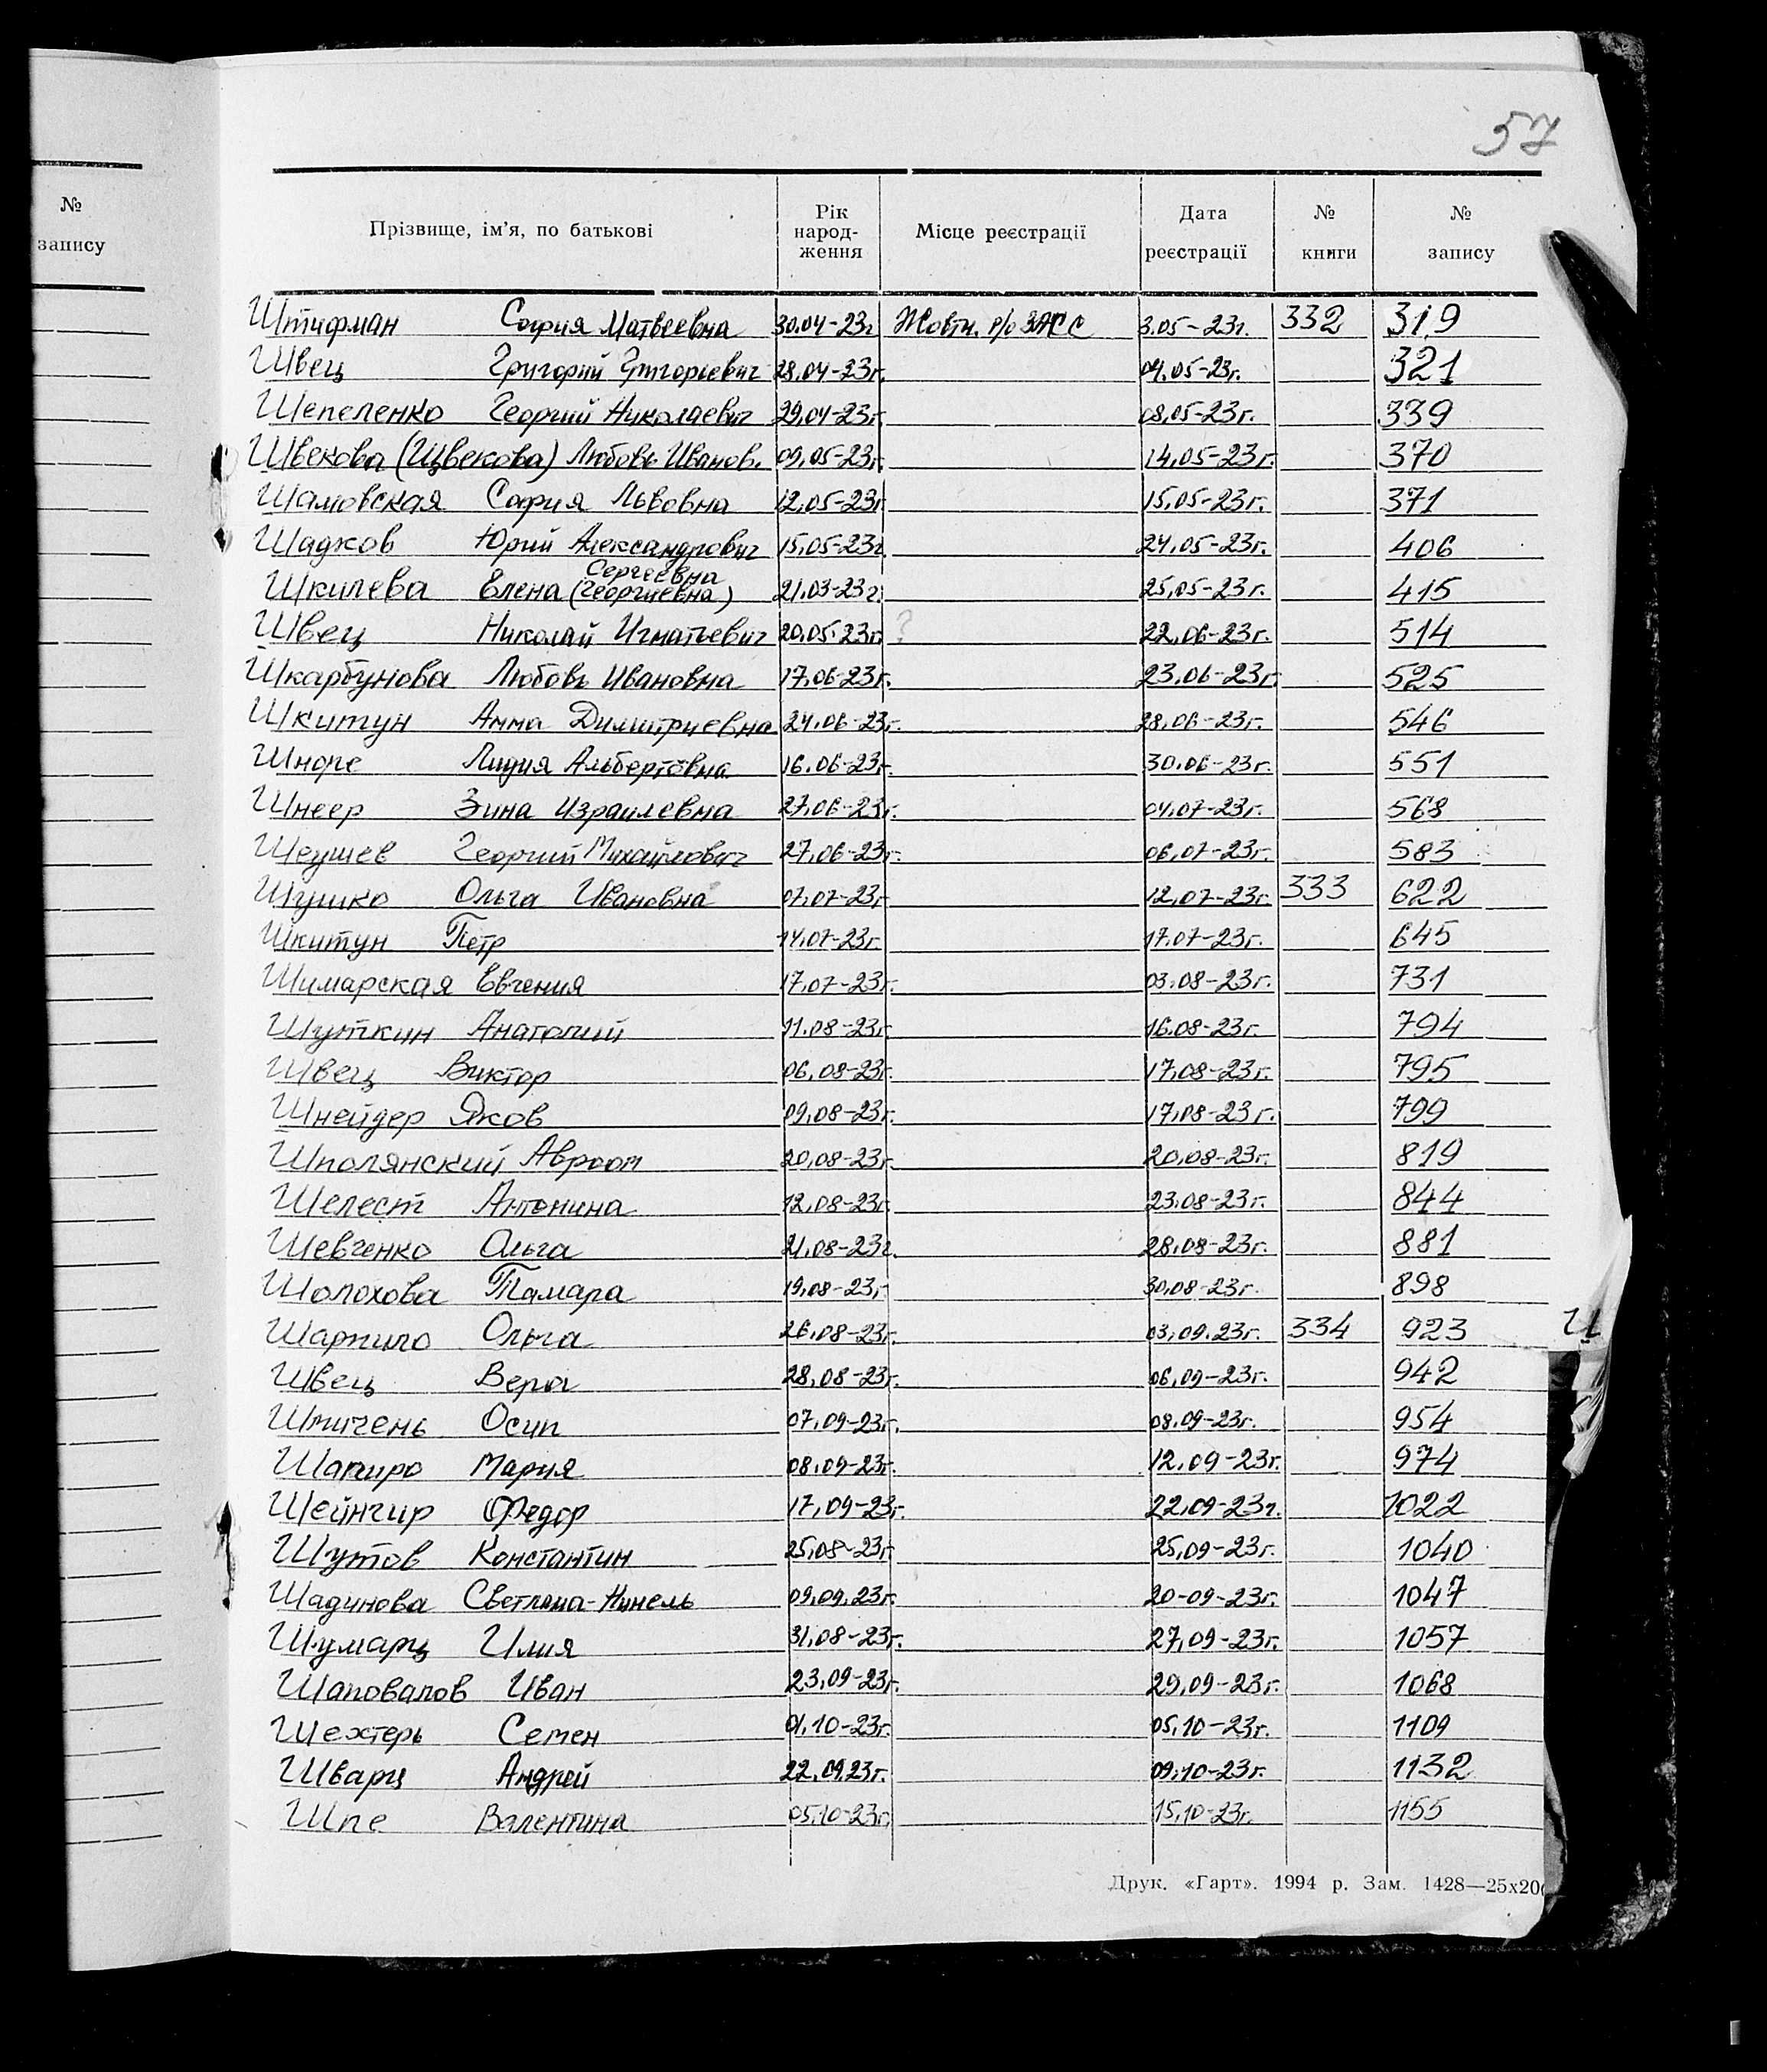 57
№ запису
Прізвище, ім'я, по батькові Рік народ-ження Місце реєстрації Дата реєстрації № книги № запису
Штифман София Матвеевна 30.04-23г Жовтн. р/о ЗАГС 3.05-23г. 332 319
Швец Григорий Григорьевич 28.04-23г. 04.05-23г. 321
Шепеленко Георгий Николаевич 29.04-23г. 08.05-23г. 339
Швекова (Щвекова) Любовь Иванов. 09.05-23г. 14.05-23г. 370
Шамовская София Львовна 12.05-23г 15.05-23г. 371
Шадков Юрий Александрович 15.05-23г. 24.05-23г. 406
Сергеевна
Шкилева Елена (Георгиевна) 21.03-23г. 25.05-23г. 415
Швец Николай Игнатьевич 20.05.23г. ? 22.06-23г. 514
Шкарбунова Любовь Ивановна 17.06-23г. 23.06-23г. 525
Шкитун Анна Димитриевна 24.06-23г. 28.06-23г. 546
Шноре Лидия Альбертовна 16.06-23г. 30.06-23г. 551
Шнеер Зина Израилевна 27.06-23г. 04.07-23г. 568
Шеушев Георгий Михайлович 27.06-23г. 06.07-23г. 583
Шушко Ольга Ивановна 07.07-23г 12.07-23г. 333 622
Шкитун Петр 14.07-23г. 17.07-23г. 645
Шимарская Евгения 17.07-23г. 03.08-23г. 731
Шуткин Анатолий 11.08-23г. 16.08-23г. 794
Швец Виктор 06.08-23г. 17.08-23г. 795
Шнейдер Яков 09.08-23г. 17.08-23г. 799
Шполянский Авраам 20.08-23г. 20.08-23г. 819
Шелест Антонина 12.08-23г. 23.08-23г. 844
Шевченко Ольга 21.08-23г. 28.08-23г. 881
Шолохова Тамара 19.08-23г. 30.08-23г. 898
Шарпило Ольга 26.08-23г. 03.09.23г. 334 923
Швец Вера 28.08-23г. 06.09-23г. 942
Шпичень Осип 07.09-23г. 08.09-23г. 954
Шапиро Мария 08.09-23г. 12.09-23г. 974
Шейнгир Федор 17.09-23г. 22.09-23г. 1022
Шутов Константин 25.08-23г. 25.09-23г. 1040
Шадинова Светлана-Нинель 09.09.23г. 20-09-23г. 1047
Шумарц Илия 31.08-23г. 27.09-23г. 1057
Шаповалов Иван 23.09-23г. 29.09-23г. 1068
Шехтерь Семен 01.10-23г. 05.10-23г. 1109
Шварц Андрей 22.09.23г. 09.10-23г. 1132
Шпе Валентина 05.10-23г. 15.10-23г. 1155
Друк. «Гарт». 1994 р. Зам. 1428—25х20